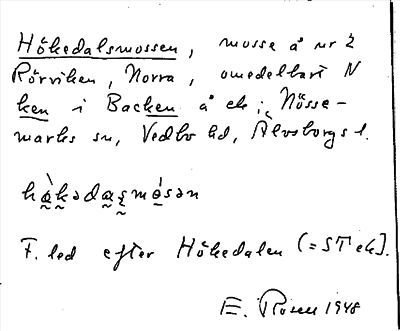 Hökedalsmossen, mosse å nr 2
Rörviken, Norra, omedelbart N
ken i Backen å ek; Nösse-
marks sn, Vedbo hd, Älvsborgs l.
F. led efter Hökedalen (= ST ek).
E. Rosen 1948